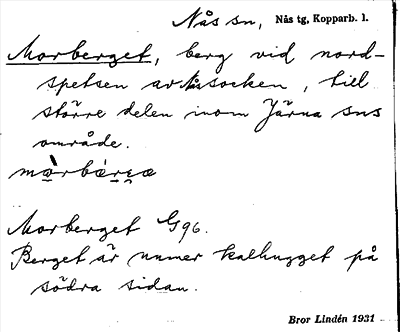 Nås sn, Nås tg, Kopparb. l.
Morberget, berg vid nord-
spetsen av Nås socken, till
större delen inom Järna sns
område.
Morberget G96.
Berget är numer kalhugget på
södra sidan.
Bror Lindén 1931